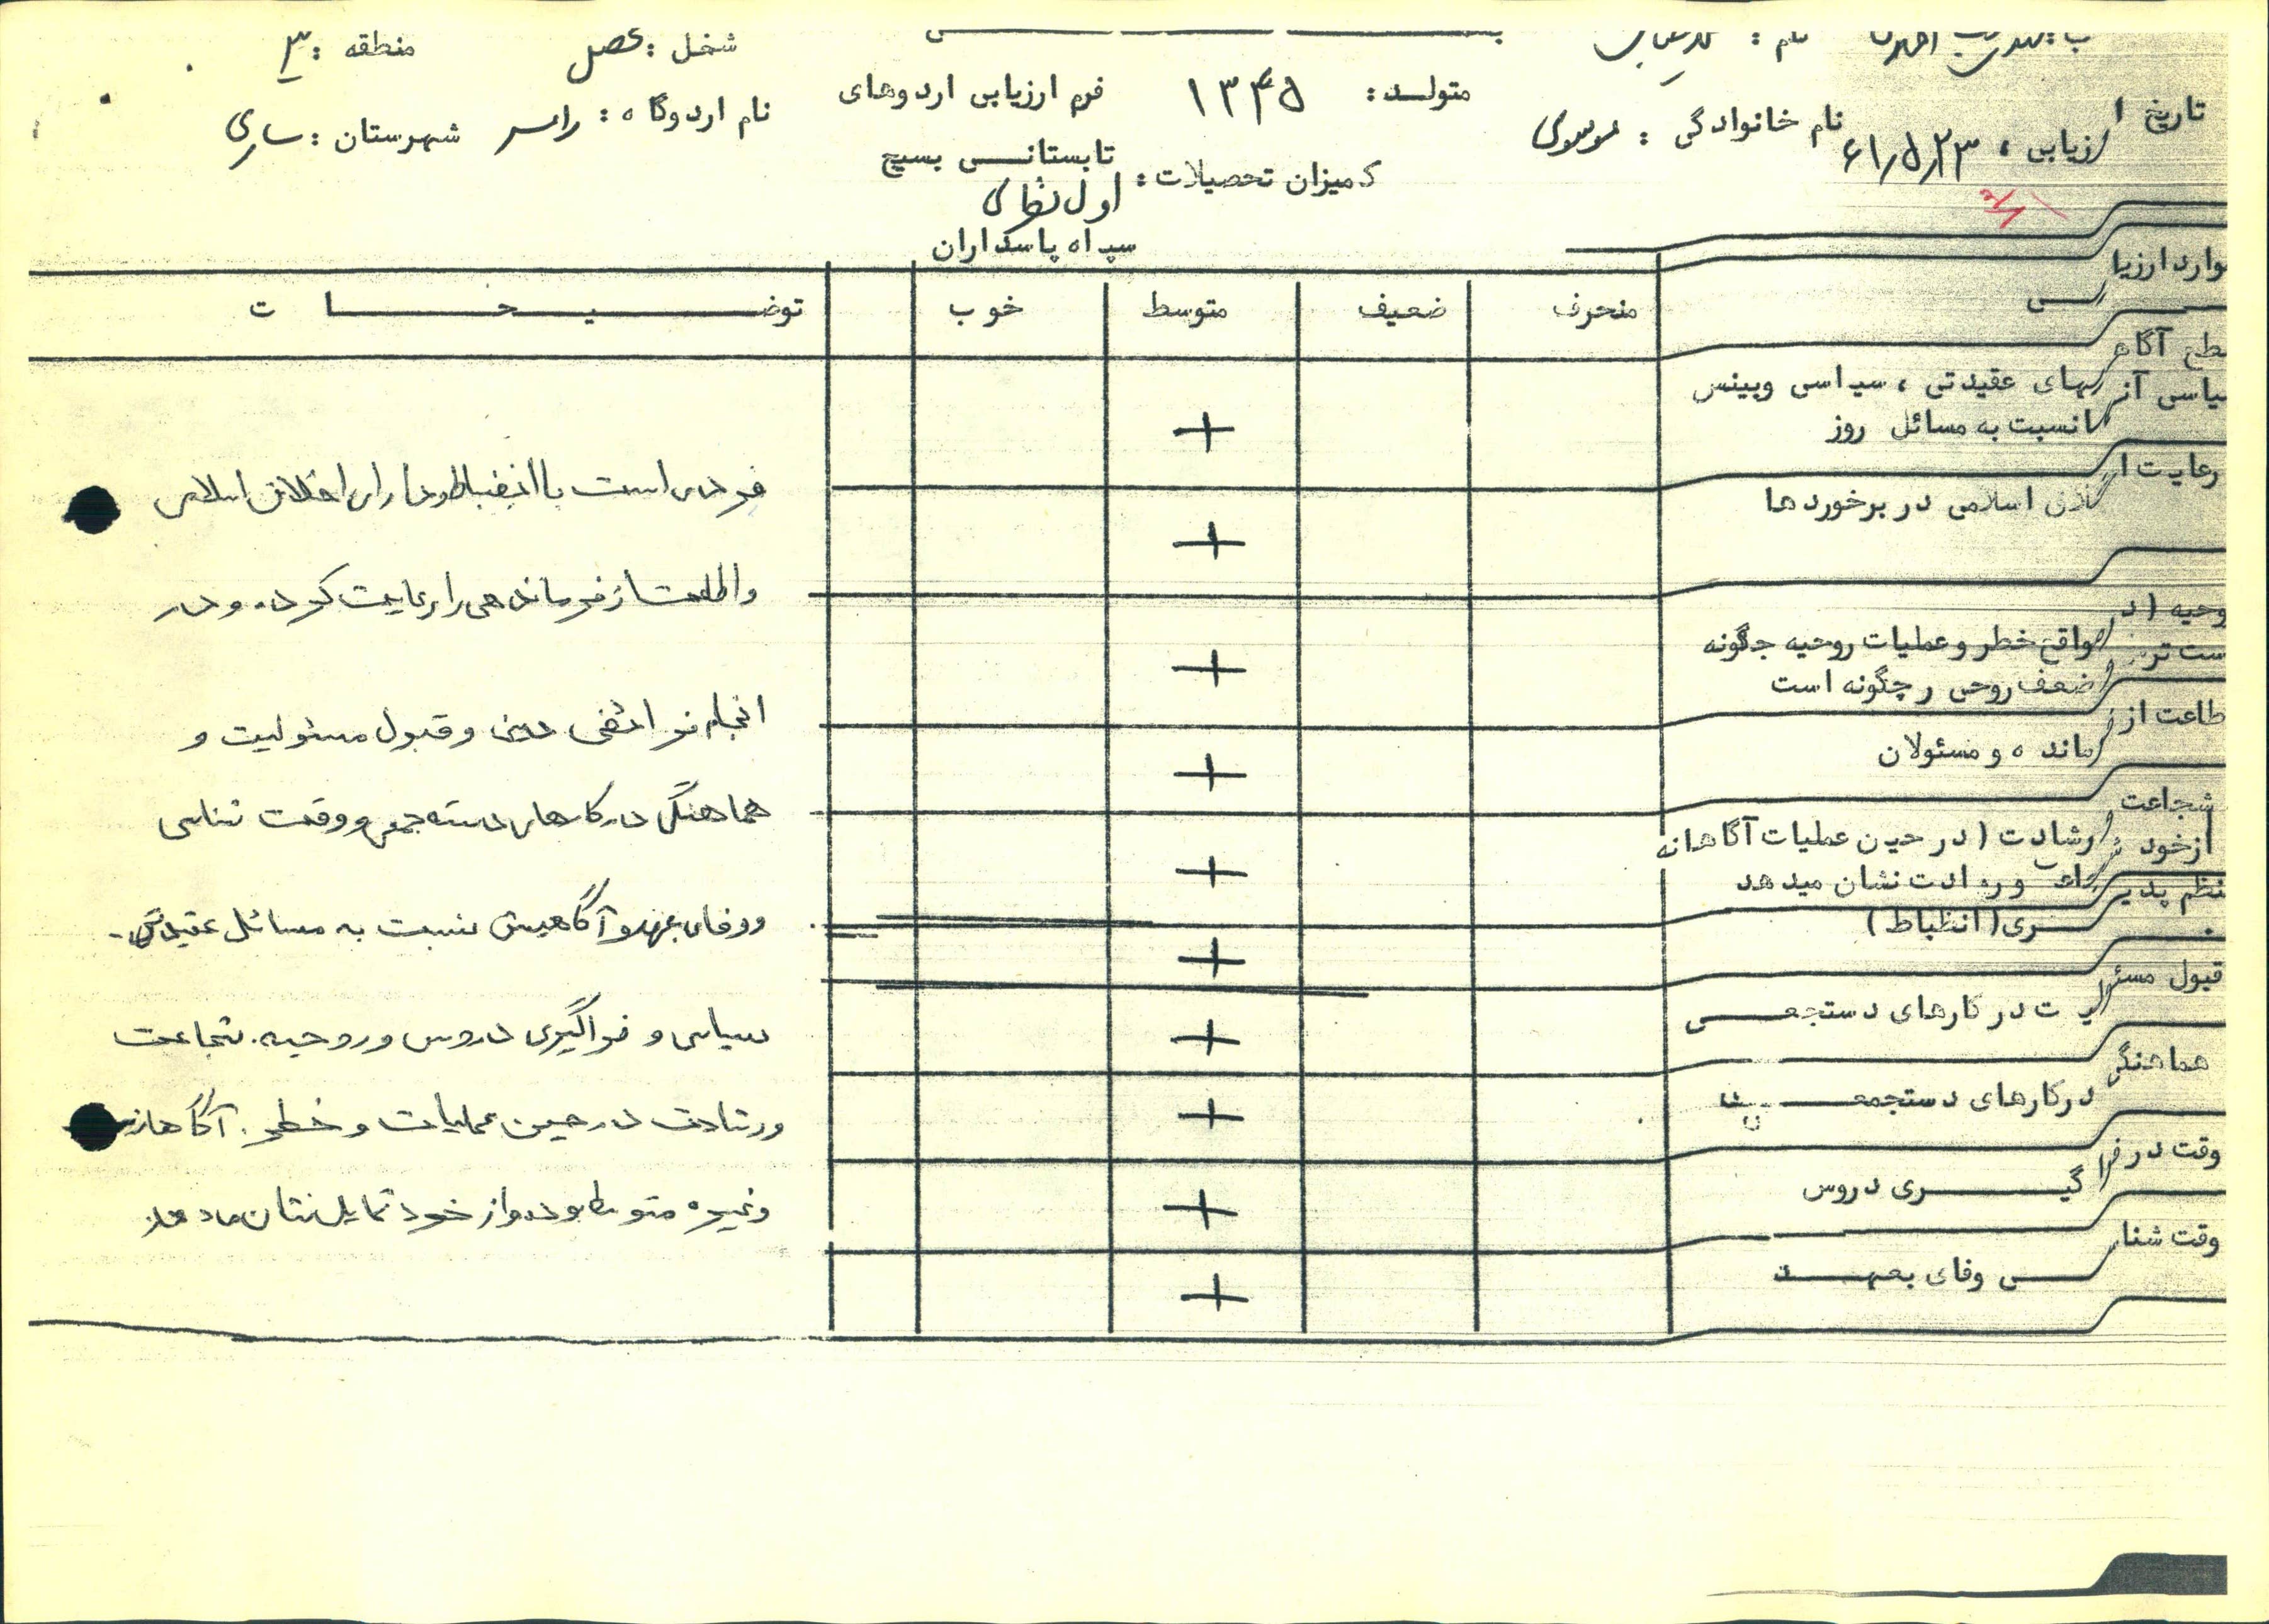 نام :
شغل : محصل
منطقه : ۳
تاریخ ارزیابی ، ۶۱/۵/۲۳
نام خانوادگی : موسوی
متولد : ۱۳۴۵
فرم ارزیابی اردوهای
نام اردوگاه : رامسر
شهرستان : ساری
میزان تحصیلات :
تابستانی بسیج
اول نظری
سپاه پاسداران
موارد ارزیابی
منحرف
ضعیف
متوسط
خوب
توضیحات
سطح آگاهیهای عقیدتی ، سیاسی وبینش
سیاسی آنها نسبت به مسائل روز
+
رعایت اخلاق اسلامی در برخوردها
+
روحیه ( در مواقع خطر و عملیات روحیه چگونه
است ضعف روحی چگونه است
+
اطاعت از فرمانده و مسئولان
+
شجاعت ورشادت ( در حین عملیات آگاهانه
از خود نشان میدهد
+
نظم پذیری ( انظباط )
+
قبول مسئولیت در کارهای دستجمعی
+
هماهنگی درکارهای دستجمعی
+
وقت در فراگیری دروس
+
وقت شناسی وفای بعهد
+
فردی است با انضباط و دارای اخلاق اسلامی
و اطاعت از فرماندهی را رعایت کرده و در
انجام فرائض دینی و قبول مسئولیت و
هماهنگی در کارهای دسته جمعی و وقت شناسی
و وفای بعهد و آگاهیش نسبت به مسائل عقیدتی
سیاسی و فراگیری دروس و روحیه . شجاعت
ورشادت در حین عملیات و خطر . آگاهانه
و غیره متوسط بوده و از خود تمایل نشان